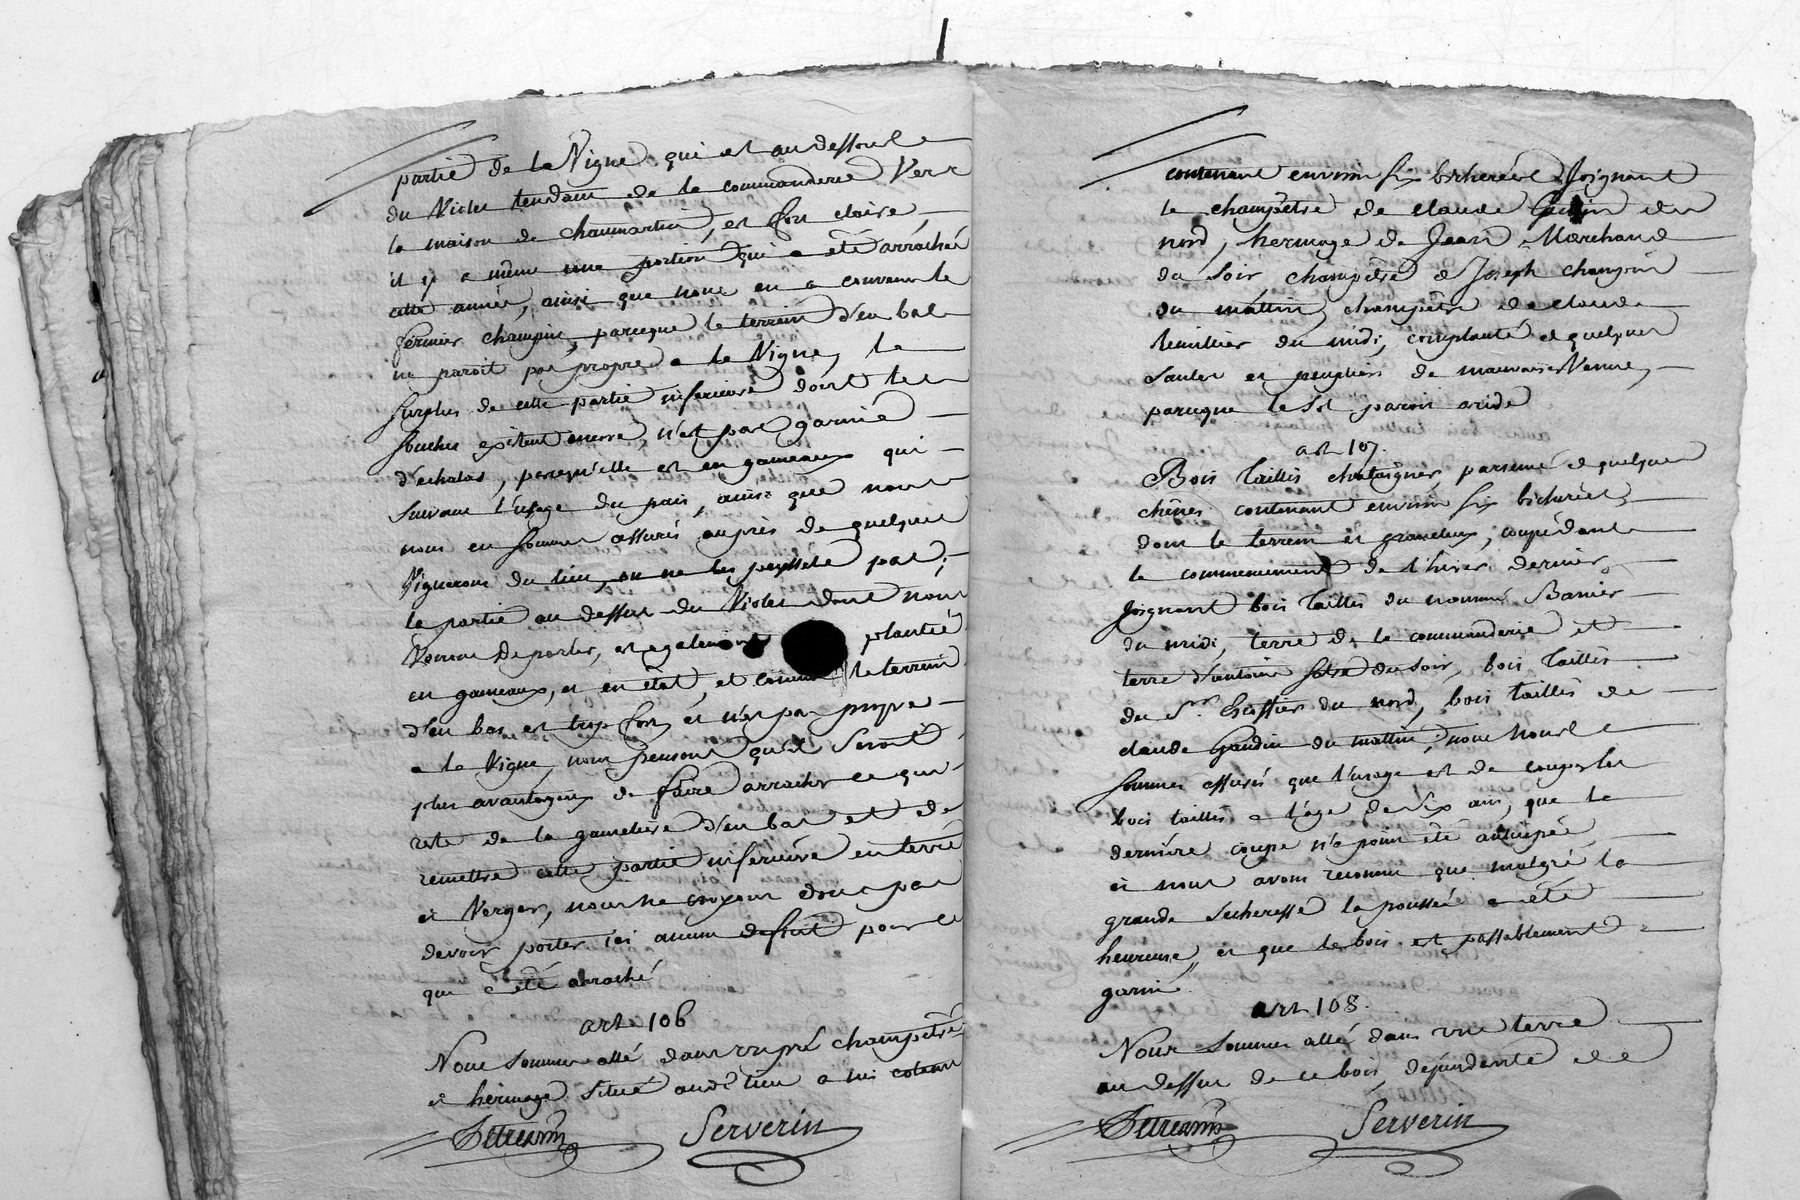 partie de la Vigne qui est au dessoul
du Violet tendant de la commanderie Vers
la maison de chaumartin, est fort claire,
il y a même une portion qui a été arrachée
cette année, ainsi que nous en a convenu le
fermier champin, parceque le terrein d'en bas
ne paroit pas propre a la Vigne, le
surplus de cette partie inferieure dont les
souches existent encore, n'est pas garnie
d'echalas, parcequ'elle est en gameaux qui
suivant l'usage du pais, ainsi que nous
nous en sommes assurés auprès de quelques
Vignerons du lieu, on ne les peysselle pas;
la partie au dessus du Violet dont nous
Venons de parler, est egalement plantée
en gameaux, et en etat, et comme le terrein
d'en bas est trop fort et n'est pas propre
a la Vigne, nous pensons qu'il seroit
plus avantageux de faire arracher ce qui
reste de la gameliere d'en bas et de
remettre cette partie inferieure en terre
et Verger, nous ne croyons donc pas
devoir porter ici aucun deficit pour ce
qui a été arraché
art. 106
Nous sommes allé dans un pré champêtre
et hermage situé aud.t lieu a mi coteau
Serverin
contenant environ six bicherées Joignant
le champêtre de claude du
nord, hermage de Jean Marchand
du soir champêtre de Joseph champin
du mattin, champêtre de claude
du midi, complanté de quelques
saules et peupliers de mauvaise Venue,
parceque le sol paroit aride
art. 107.
Bois taillis chataigner, parsemé de quelques
chênes contenant environ six bicherées,
dont le terrein est graveleux, coupé dans
le commencement de l'hiver dernier,
Joignant bois taillis du nommé Banier
du midi, terre de la commanderie et
terre d'antoine du soir, bois taillis
du S.r du nord, bois taillis de
claude Gaudin du mattin, nous nous
sommes assurés que l'usage est de couper les
bois taillis a l'âge de six ans, que la
dernière coupe n'a point été anticipée,
et nous avons reconnu que malgré la
grande secheresse la poussée a été
heureuse, et que le bois est passablement
garni.
art. 108.
Nous sommes allé dans une terre
au dessus de ce bois, dépendante de
Serverin